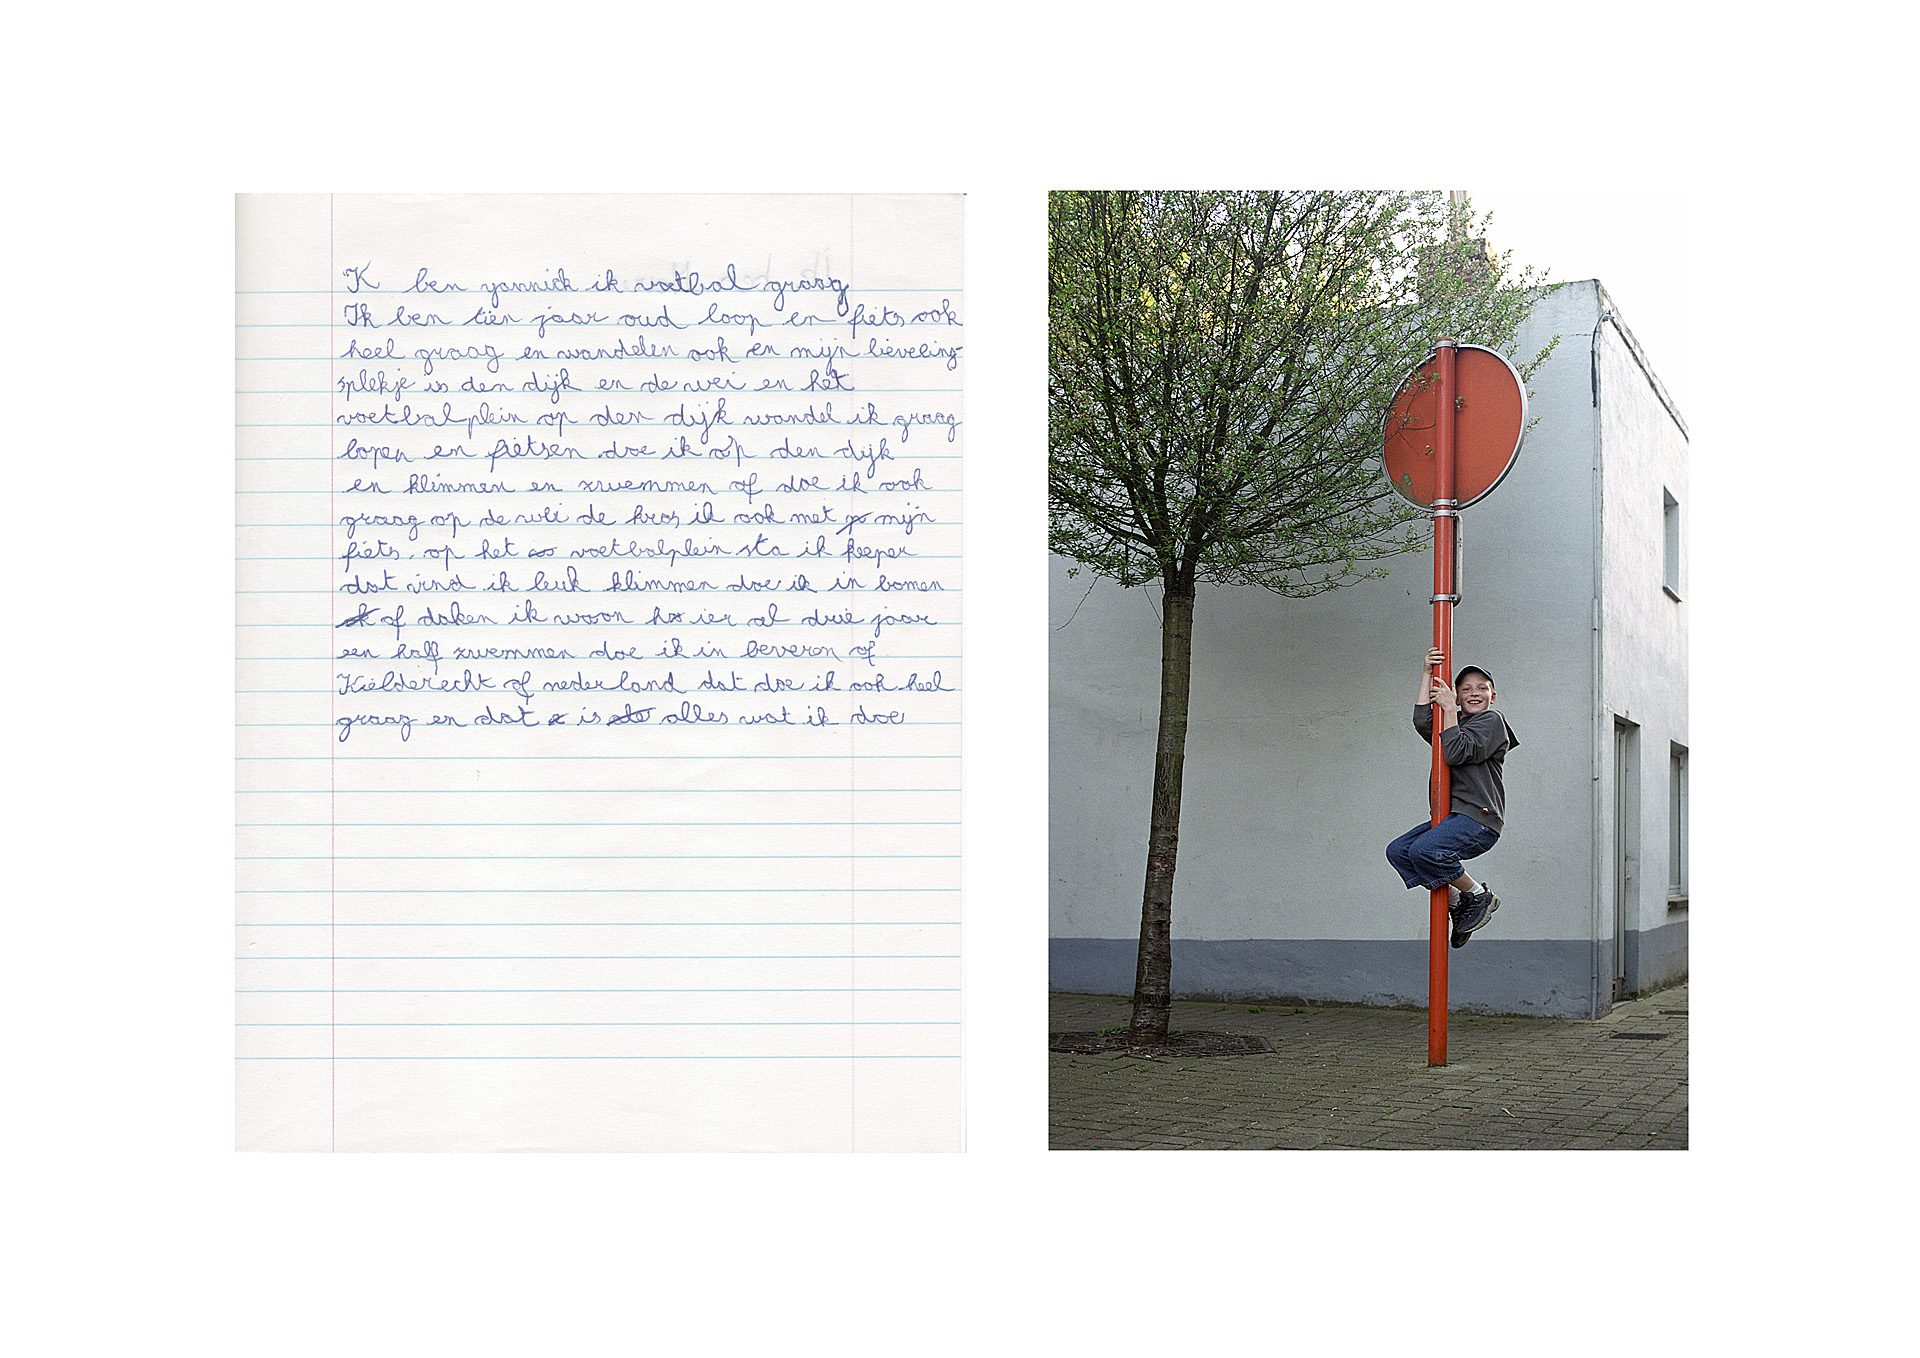 K ben yannick ik voetbal graag
Ik ben tien jaar oud loop en fiets ook
heel graag en wandelen ook en mijn lieveling-
splekje is den dijk en de wei en het
voetbalplein op den dijk wandel ik graag
lopen en fietsen doe ik op den dijk
en klimmen en zwemmen of doe ik ook
graag op de wei de kros ik ook met mijn
fiets. op het voetbalplein sta ik keeper
dat vind ik leuk klimmen doe ik in bomen
of daken ik woon hier al drie jaar
een half zwemmen doe ik in beveren of
Kielderecht of nederland dat doe ik ook heel
graag en dat is alles wat ik doe